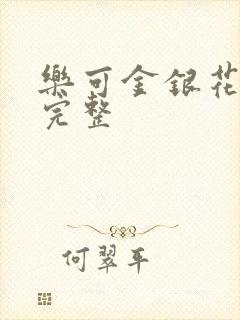 樂可金銀花
完整
何翠平